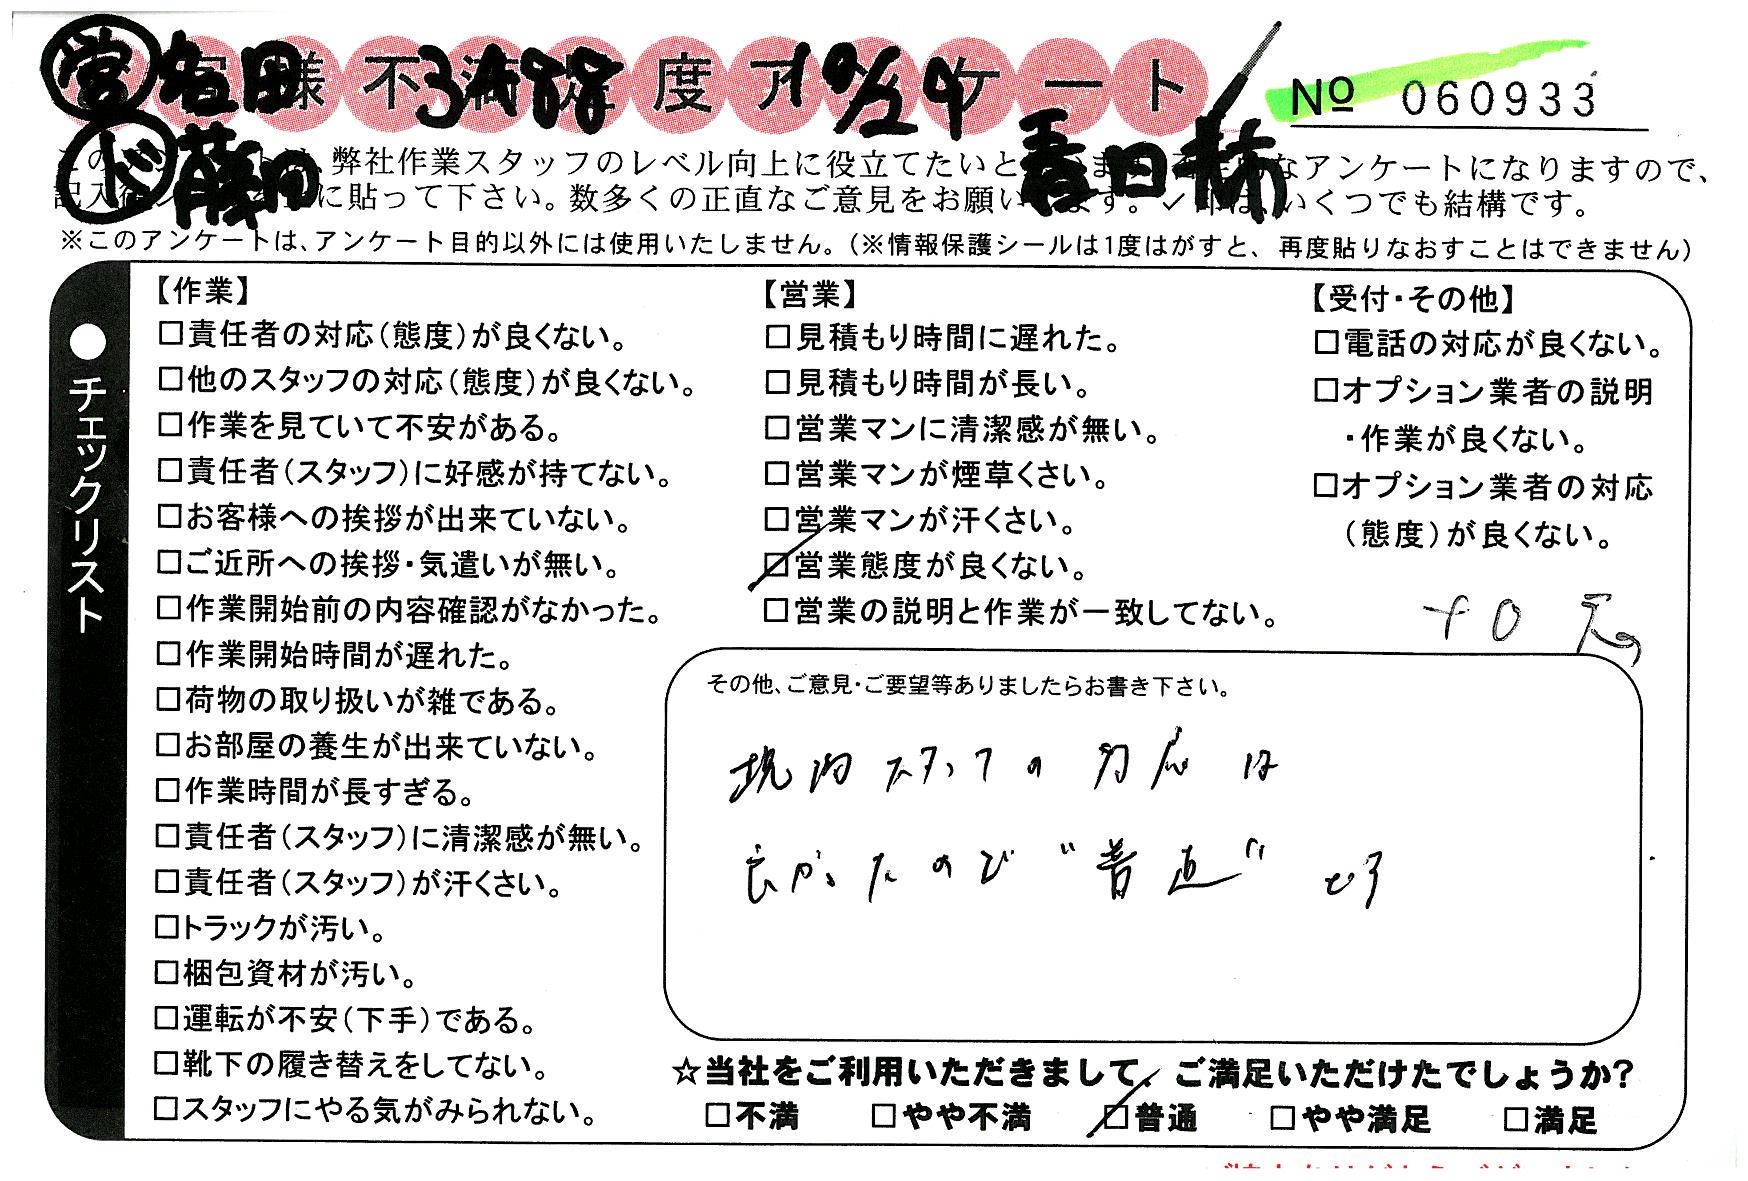 営 塩田 3A88 10/24
ド 藤田 春日
お客様不満足度アンケート
№ 060933
このアンケートは、弊社作業スタッフのレベル向上に役立てたいと なアンケートになりますので、
記入後 に貼って下さい。数多くの正直なご意見をお願い ます。✓印は、いくつでも結構です。
※このアンケートは、アンケート目的以外には使用いたしません。(※情報保護シールは1度はがすと、再度貼りなおすことはできません)
●チェックリスト
【作業】
□責任者の対応(態度)が良くない。
□他のスタッフの対応(態度)が良くない。
□作業を見ていて不安がある。
□責任者(スタッフ)に好感が持てない。
□お客様への挨拶が出来ていない。
□ご近所への挨拶・気遣いが無い。
□作業開始前の内容確認がなかった。
□作業開始時間が遅れた。
□荷物の取り扱いが雑である。
□お部屋の養生が出来ていない。
□作業時間が長すぎる。
□責任者(スタッフ)に清潔感が無い。
□責任者(スタッフ)が汗くさい。
□トラックが汚い。
□梱包資材が汚い。
□運転が不安(下手)である。
□靴下の履き替えをしてない。
□スタッフにやる気がみられない。
【営業】
□見積もり時間に遅れた。
□見積もり時間が長い。
□営業マンに清潔感が無い。
□営業マンが煙草くさい。
□営業マンが汗くさい。
□営業態度が良くない。
□営業の説明と作業が一致してない。
【受付・その他】
□電話の対応が良くない。
□オプション業者の説明
・作業が良くない。
□オプション業者の対応
(態度)が良くない。
その他、ご意見・ご要望等ありましたらお書き下さい。
現場スタッフの対応は
良かったので"普通"です
☆当社をご利用いただきまして、ご満足いただけたでしょうか?
□不満 □やや不満 □普通 □やや満足 □満足